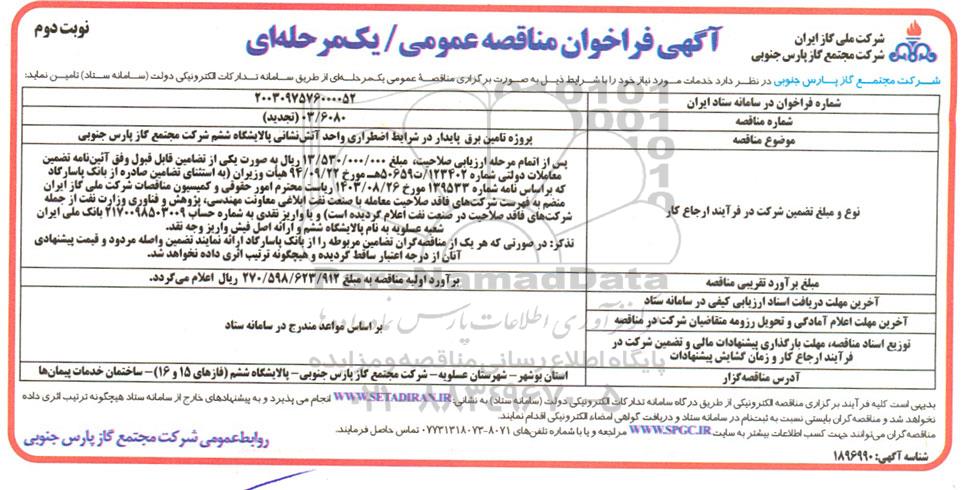 شرکت ملی گاز ایران
شرکت مجتمع گاز پارس جنوبی
آگهی فراخوان مناقصه عمومی / یک‌مرحله‌ای
نوبت دوم
شرکت مجتمع گاز پارس جنوبی در نظر دارد خدمات مورد نیاز خود را با شرایط ذیل به صورت برگزاری مناقصهٔ عمومی یک‌مرحله‌ای از طریق سامانه تدارکات الکترونیکی دولت (سامانه ستاد) تامین نماید:
شماره فراخوان در سامانه ستاد ایران
۲۰۰۳۰۹۷۵۷۶۰۰۰۰۵۲
شماره مناقصه
۰۳/۶۰۸۰ (تجدید)
موضوع مناقصه
پروژه تامین برق پایدار در شرایط اضطراری واحد آتش‌نشانی پالایشگاه ششم شرکت مجتمع گاز پارس جنوبی
نوع و مبلغ تضمین شرکت در فرآیند ارجاع کار
پس از اتمام مرحله ارزیابی صلاحیت، مبلغ ۱۳/۵۳۰/۰۰۰/۰۰۰ ریال به صورت یکی از تضامین قابل قبول وفق آئین‌نامه تضمین
معاملات دولتی شماره ۱۲۳۴۰۲/ت۵۰۶۵۹هـ مورخ ۹۴/۰۹/۲۲ هیأت وزیران (به استثنای تضامین صادره از بانک پاسارگاد
که براساس نامه شماره ۱۳۹۵۳۳ مورخ ۱۴۰۳/۰۸/۲۶ ریاست محترم امور حقوقی و کمیسیون مناقصات شرکت ملی گاز ایران
منضم به فهرست شرکت‌های فاقد صلاحیت معامله با صنعت نفت ابلاغی معاونت مهندسی، پژوهش و فناوری وزارت نفت از جمله
شرکت‌های فاقد صلاحیت در صنعت نفت اعلام گردیده است) و یا واریز نقدی به شماره حساب ۲۱۷۰۰۹۸۵۰۳۰۰۹ بانک ملی ایران
شعبه عسلویه به نام پالایشگاه ششم و ارائه اصل فیش واریز وجه نقد.
تذکر: در صورتی که هر یک از مناقصه‌گران تضامین مربوطه را از بانک پاسارگاد ارائه نمایند تضمین واصله مردود و قیمت پیشنهادی
آنان از درجه اعتبار ساقط گردیده و هیچگونه ترتیب اثری داده نخواهد شد.
مبلغ برآورد تقریبی مناقصه
برآورد اولیه مناقصه به مبلغ ۲۷۰/۵۹۸/۶۲۳/۹۱۲ ریال اعلام می‌گردد.
آخرین مهلت دریافت اسناد ارزیابی کیفی در سامانه ستاد
آخرین مهلت اعلام آمادگی و تحویل رزومه متقاضیان شرکت در مناقصه
توزیع اسناد مناقصه، مهلت بارگذاری پیشنهادات مالی و تضمین شرکت در
فرآیند ارجاع کار و زمان گشایش پیشنهادات
بر اساس مواعد مندرج در سامانه ستاد
آدرس مناقصه‌گزار
استان بوشهر – شهرستان عسلویه – شرکت مجتمع گاز پارس جنوبی – پالایشگاه ششم (فازهای ۱۵ و ۱۶) – ساختمان خدمات پیمان‌ها
بدیهی است کلیه فرآیند برگزاری مناقصه الکترونیکی از طریق درگاه سامانه تدارکات الکترونیکی دولت (سامانه ستاد) به نشانی: WWW.SETADIRAN.IR انجام می پذیرد و به پیشنهادهای خارج از سامانه ستاد هیچگونه ترتیب اثری داده
نخواهد شد و مناقصه‌گران بایستی نسبت به ثبت‌نام در سامانه ستاد و دریافت گواهی امضاء الکترونیکی اقدام نمایند.
مناقصه گران می‌توانند جهت کسب اطلاعات بیشتر به سایت WWW.SPGC.IR مراجعه و یا با شماره تلفن‌های ۸۰۷۱-۰۷۷۳۱۳۱۸۰۷۳ تماس حاصل فرمایند.
روابط‌عمومی شرکت مجتمع گاز پارس جنوبی
شناسه آگهی: ۱۸۹۶۹۹۰
ParsNamadData
پایگاه اطلاع رسانی مناقصه و مزایده